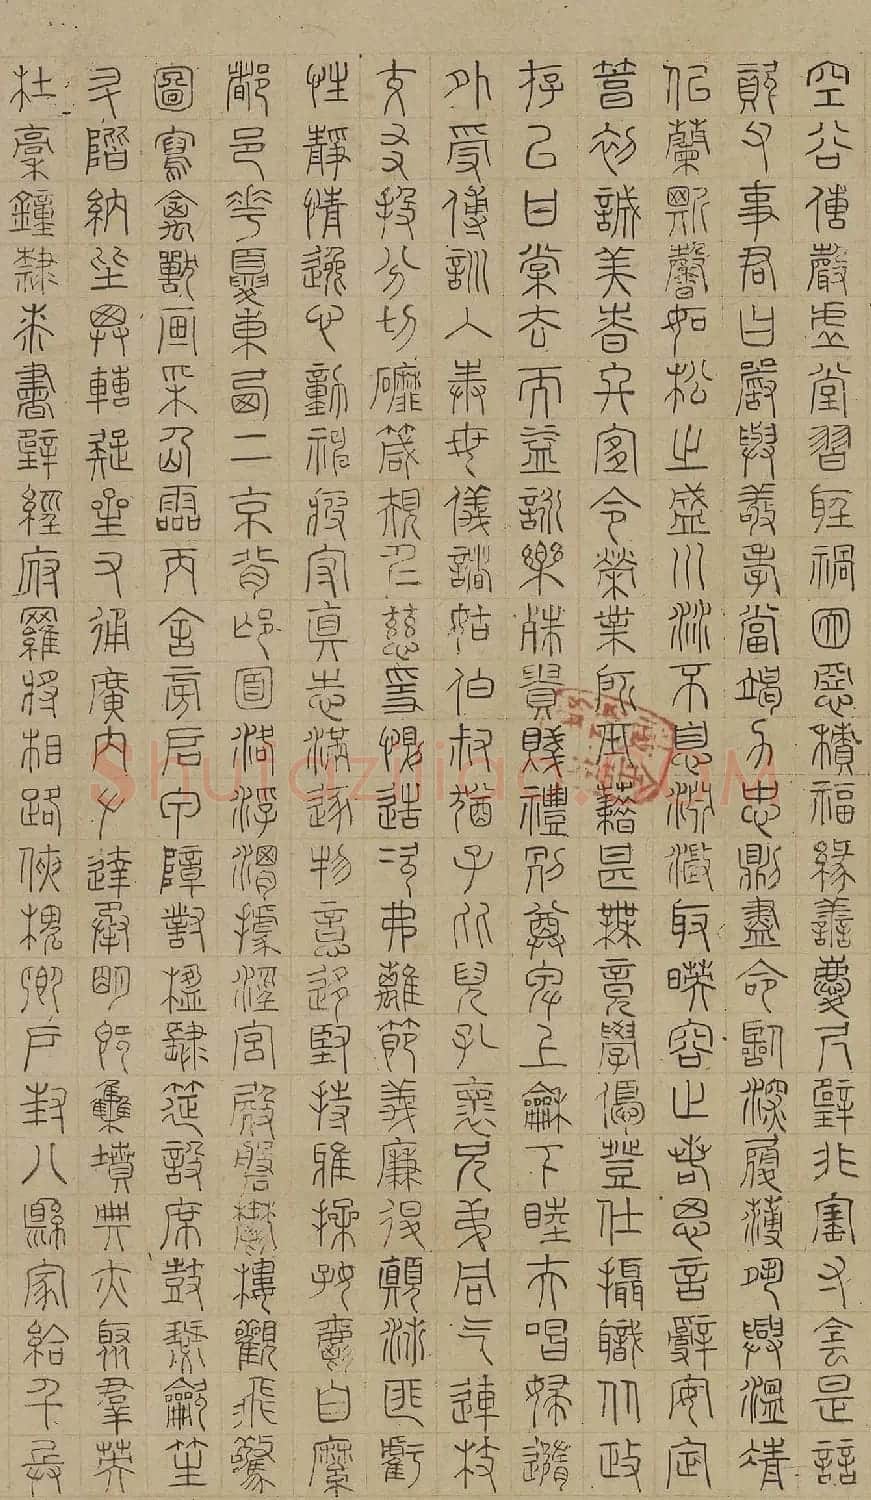 空谷傳聲虛堂習聽禍因惡積福緣善慶尺璧非寶寸陰是競
資父事君曰嚴與敬孝當竭力忠則盡命臨深履薄夙興溫凊
似蘭斯馨如松之盛川流不息淵澄取映容止若思言辭安定
篤初誠美慎終宜令榮業所基藉甚無竟學優登仕攝職從政
存以甘棠去而益詠樂殊貴賤禮別尊卑上和下睦夫唱婦隨
外受傅訓入奉母儀諸姑伯叔猶子比兒孔懷兄弟同氣連枝
交友投分切磨箴規仁慈隱惻造次弗離節義廉退顛沛匪虧
性靜情逸心動神疲守真志滿逐物意移堅持雅操好爵自縻
都邑華夏東西二京背邙面洛浮渭據涇宮殿盤鬱樓觀飛驚
圖寫禽獸畫彩仙靈丙舍旁啟甲帳對楹肆筵設席鼓瑟吹笙
升階納陛弁轉疑星右通廣內左達承明既集墳典亦聚群英
杜稾鍾隸漆書壁經府羅將相路俠槐卿戶封八縣家給千兵
Shufaziliao.COM